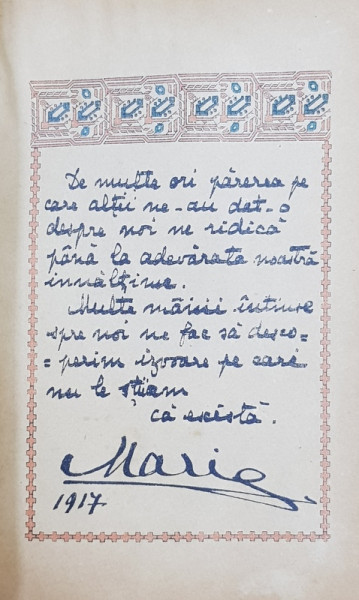 De multe ori părerea pe
care alții ne-au dat-o
despre noi ne ridică
până la adevărata noastră
innălțime.
Multe mâini întinse
spre noi ne fac să desco=
=perim izvoare pe cari
nu le știam
că există.
Maria
1917